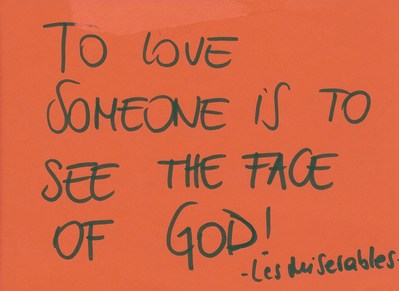 TO LOVE
SOMEONE IS TO
SEE THE FACE
OF GOD!
-Les Miserables-